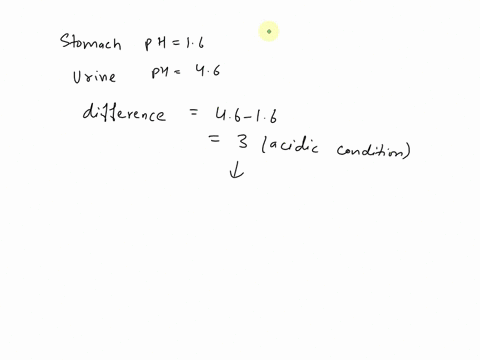 Stomach pH = 1.6
Urine pH = 4.6
difference = 4.6 - 1.6
= 3 (acidic condition)
↓